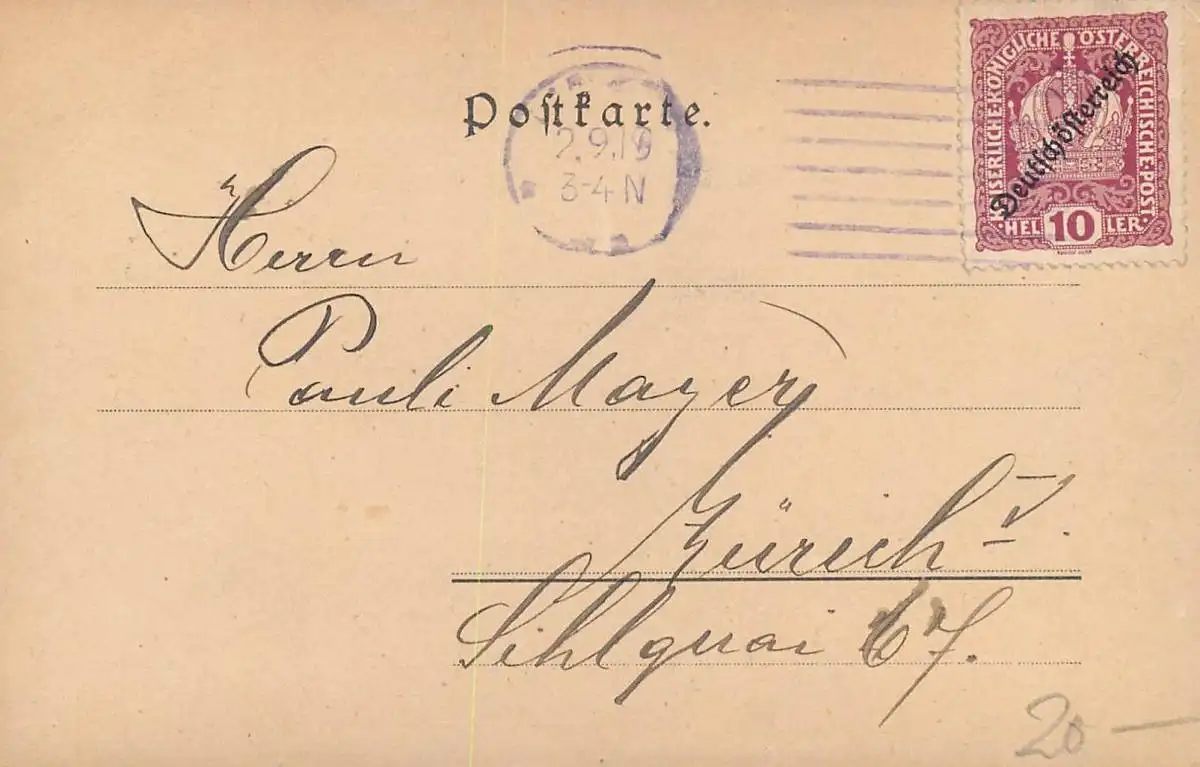 Postkarte.
2.9.19
3-4 N
KAISERLICHE·KÖNIGLICHE ÖSTERREICHISCHE·POST·
Deutschösterreich
HEL 10 LER
Herrn
Pauli Mayer
Zürich V.
Sihlquai 67.
20 —